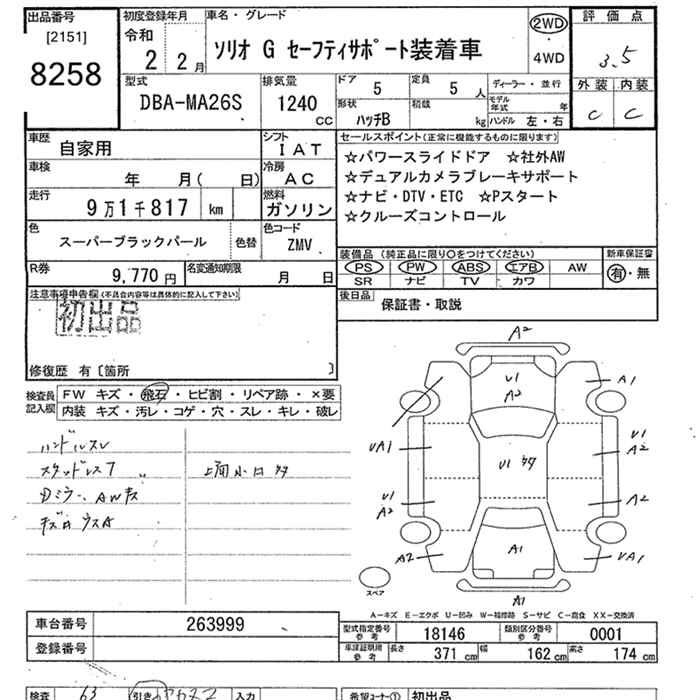 出品番号
[2151]
8258
初度登録年月
令和
2 2月
車名・グレード
ソリオ G セーフティサポート装着車
2WD
・
4WD
評価点
3.5
外装 内装
C C
型式
DBA-MA26S
排気量
1240 CC
ドア
5
定員
5 人
形状
ハッチB
積載
kg
ディーラー・並行
モデル年式 年
ハンドル 左・右
車歴
自家用
シフト
IAT
車検
年 月( 日)
冷房
AC
走行
9万1千817 km
燃料
ガソリン
色
スーパーブラックパール
色替
色コード
ZMV
R券
9,770 円
名変通知期限
月 日
セールスポイント(正常に機能するものに限ります)
☆パワースライドドア ☆社外AW
☆デュアルカメラブレーキサポート
☆ナビ・DTV・ETC ☆Pスタート
☆クルーズコントロール
装備品 (純正品に限り○をつけてください)
PS PW ABS エアB AW
SR ナビ TV カワ
新車保証書
有・無
後日品
保証書・取説
注意事項申告欄(不具合内容等は具体的に記入して下さい)
初出品
修復歴 有〔箇所 〕
検査員記入欄
FW キズ・飛石・ヒビ割・リペア跡・×要
内装 キズ・汚レ・コゲ・穴・スレ・キレ・破レ
ハンドルスレ
スタッドレス7
上面小キズ多
Dミラー、AWキズ
A2
U1
A2
A1
UA1
U1
A2
U1
A2
A2
A2
UA1
A1
A1
スペア
A-キズ E-エクボ U-凹み W-補修跡 S-サビ C-腐食 XX-交換済
車台番号
263999
登録番号
型式指定番号 参考
18146
類別区分番号 参考
0001
車庫証明用 参考
長さ 371 cm 幅 162 cm 高さ 174 cm
検査
63
引き
入力
希望コーナー① 初出品